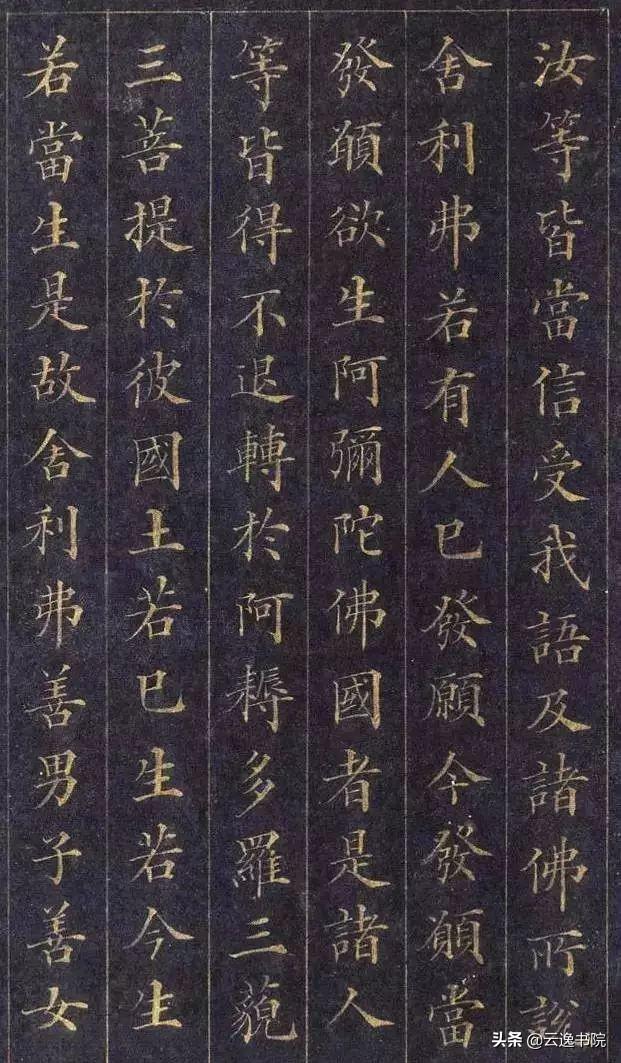 汝等皆當信受我語及諸佛所說
舍利弗若有人已發願今發願當
發願欲生阿彌陀佛國者是諸人
等皆得不退轉於阿耨多羅三藐
三菩提於彼國土若已生若今生
若當生是故舍利弗善男子善女
头条 @云逸书院